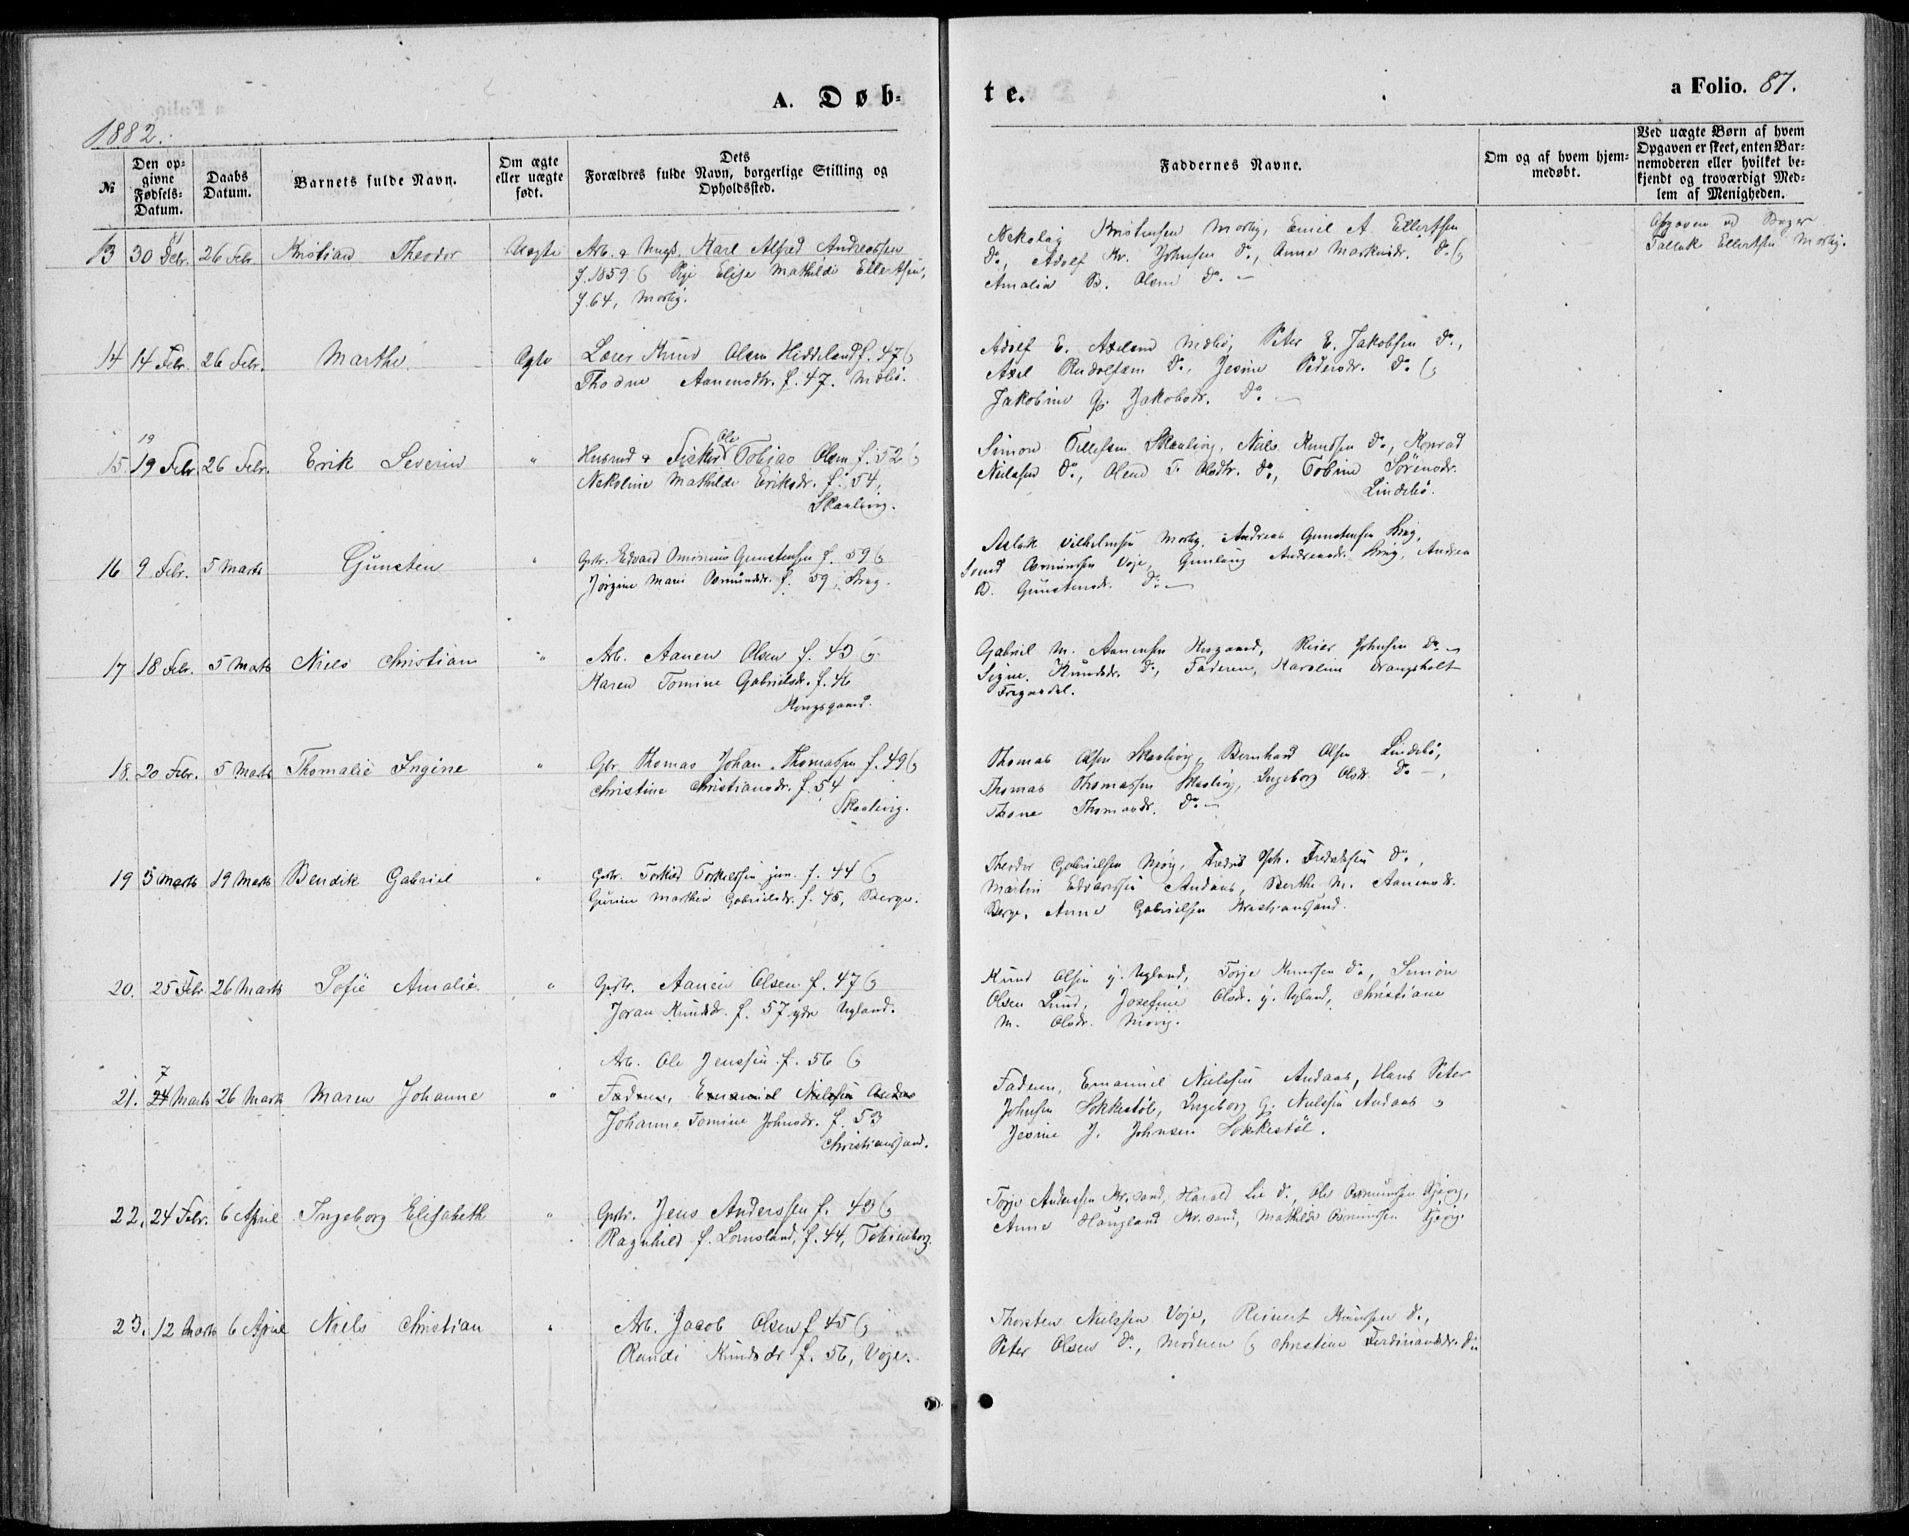 A. Døb-
te.
a Folio. 87.
1882.
№
Den op-
givne
Fødsels-
Datum.
Daabs
Datum.
Barnets fulde Navn.
Om ægte
eller uægte
født.
Dets
Forældres fulde Navn, borgerlige Stilling og
Opholdssted.
Faddernes Navne.
Om og af hvem hjem-
medøbt.
Ved uægte Børn af hvem
Opgaven er skeet, enten Bar-
nemoderen eller hvilket be-
kjendt og troværdigt Med-
lem af Menigheden.
13 30 26 Febr. Kristian Theodor Uægte
Arb. & Ungk. Karl Alfred Andreassen
f. 1859 & Pige Elise Mathilde Ellertsen,
f. 64, Mosby.
Nekolay Kristensen Mosby, Emil A. Ellertsen
Do, Adolf Kr. Johnsen Do, Anne Markusdr. Do &
Amalia B. Olsen Do. —
Opgaven ved
Tallak Ellertsen Mosby.
14 14 Febr. 26 Febr. Marthe Ægte
Lærer Knud Olsen Hiddeland f. 47 &
Thodne Aanensdtr. f. 47.
Adolf E. Axelsen Peter E. Jakobsen Do,
Axel Rudolfsen Do, Jesine Pedersdr. Do &
Jakobine G. Jakobsdr. Do —
15 19 Febr. 26 Febr. Erik Severin "
Husmd & Fisker Ole Tobias Olsen f. 52 &
Nekoline Mathilde Eriksdr. f. 54,
Skaalevig.
Simon Tellefsen Skaalevig, Niels Knudsen Do, Konrad
Nielsen Do, Olene T. Olsdtr. Do, Tobine Sörensdr.
Lindebö.
16 9 Febr. 5 Marts Gunsten "
Gstr. Edvard Gunstensen f. 59 &
Jörgine Marie Osmundsdr. f. 59, Krag.
Aslak Vilhelmsen Mosby, Andreas Gunstensen Krag,
Osmundsen Voje, Gunlaug Andreasdr. Krag, Andrea
B. Gunstensdr. Do —
17 18 Febr. 5 Marts Niels Christian "
Arb. Aanen Olsen f. 43 &
Karen Tomine Gabrielsdr. f. 46
Kongsgaard.
Gabriel M. Aanensen Reier Johnsen Do
Signe Knudsdr. Do, Faderen, Karoline Vrangsholt
18. 20 Febr. 5 Marts Thomalie Ingine "
Gbr. Thomas Johan Thomassen f. 49 &
Christine Christiansdr. f. 54
Skaalevig.
Thomas Olsen Skaalevig, Bernhard Olsen Lindebö,
Thomas Thomassen Skaalevig, Ingeborg Olsdr. Do —,
Thone Thomasdr. Do —
19 5 Marts 19 Marts Bendik Gabriel "
Gstr. Torkild Torkelssen jun. f. 44 &
Gurine Marthea Gabrielsdr. f. 45, Berge.
Theodor Gabrielsen Fredrik Joh. Fredriksen Do,
Martin Edvardssen Andaas, Berthe M. Aanensdr.
Berge, Anne Gabrielsen Kristiansand.
20. 25 Febr. 26 Marts Sofie Amalie "
Gstr. Aanen Olsen f. 47 &
Joran Knudsdr. f. 57 ydre Ugland.
Knud Olsen y. Ugland, Torje Knudsen Do, Simon
Olsen Lund, Josefine Olsdr. y. Ugland, Christiane
M. Olsdr. Movig.
21. 7 24 Marts 26 Marts Maren Johanne "
Arb. Ole Jenssen f. 56 &
Faderen, Emanuel Nielsen Andaas
Johanne Tomine Johnsdr. f. 53
Christiansand.
Faderen, Emanuel Nielsen Andaas, Hans Peter
Johnsen Stokkestöl, Ingeborg G. Nielsen Andaas &
Jesine J. Johnsen Stokkestöl.
22. 24 Febr. 6 April Ingeborg Elisabeth "
Gstr. Jens Anderssen f. 43 &
Ragnhild f. Lomsland, f. 44, Tobienborg.
Torje Anderssen Kr.sand, Harald Lie Do, Ole Osmundsen
Anne Haugland Kr.sand, Mathilde Osmundsen
23. 12 Marts 6 April Niels Christian "
Arb. Jacob Olsen f. 45 &
Randi Knudsdr f. 56, Voje.
Thorsten Nielssen Voje, Reinert Knudsen Do,
Peter Olsen Do, Moderen & Christine Ferdinandsdr. Do